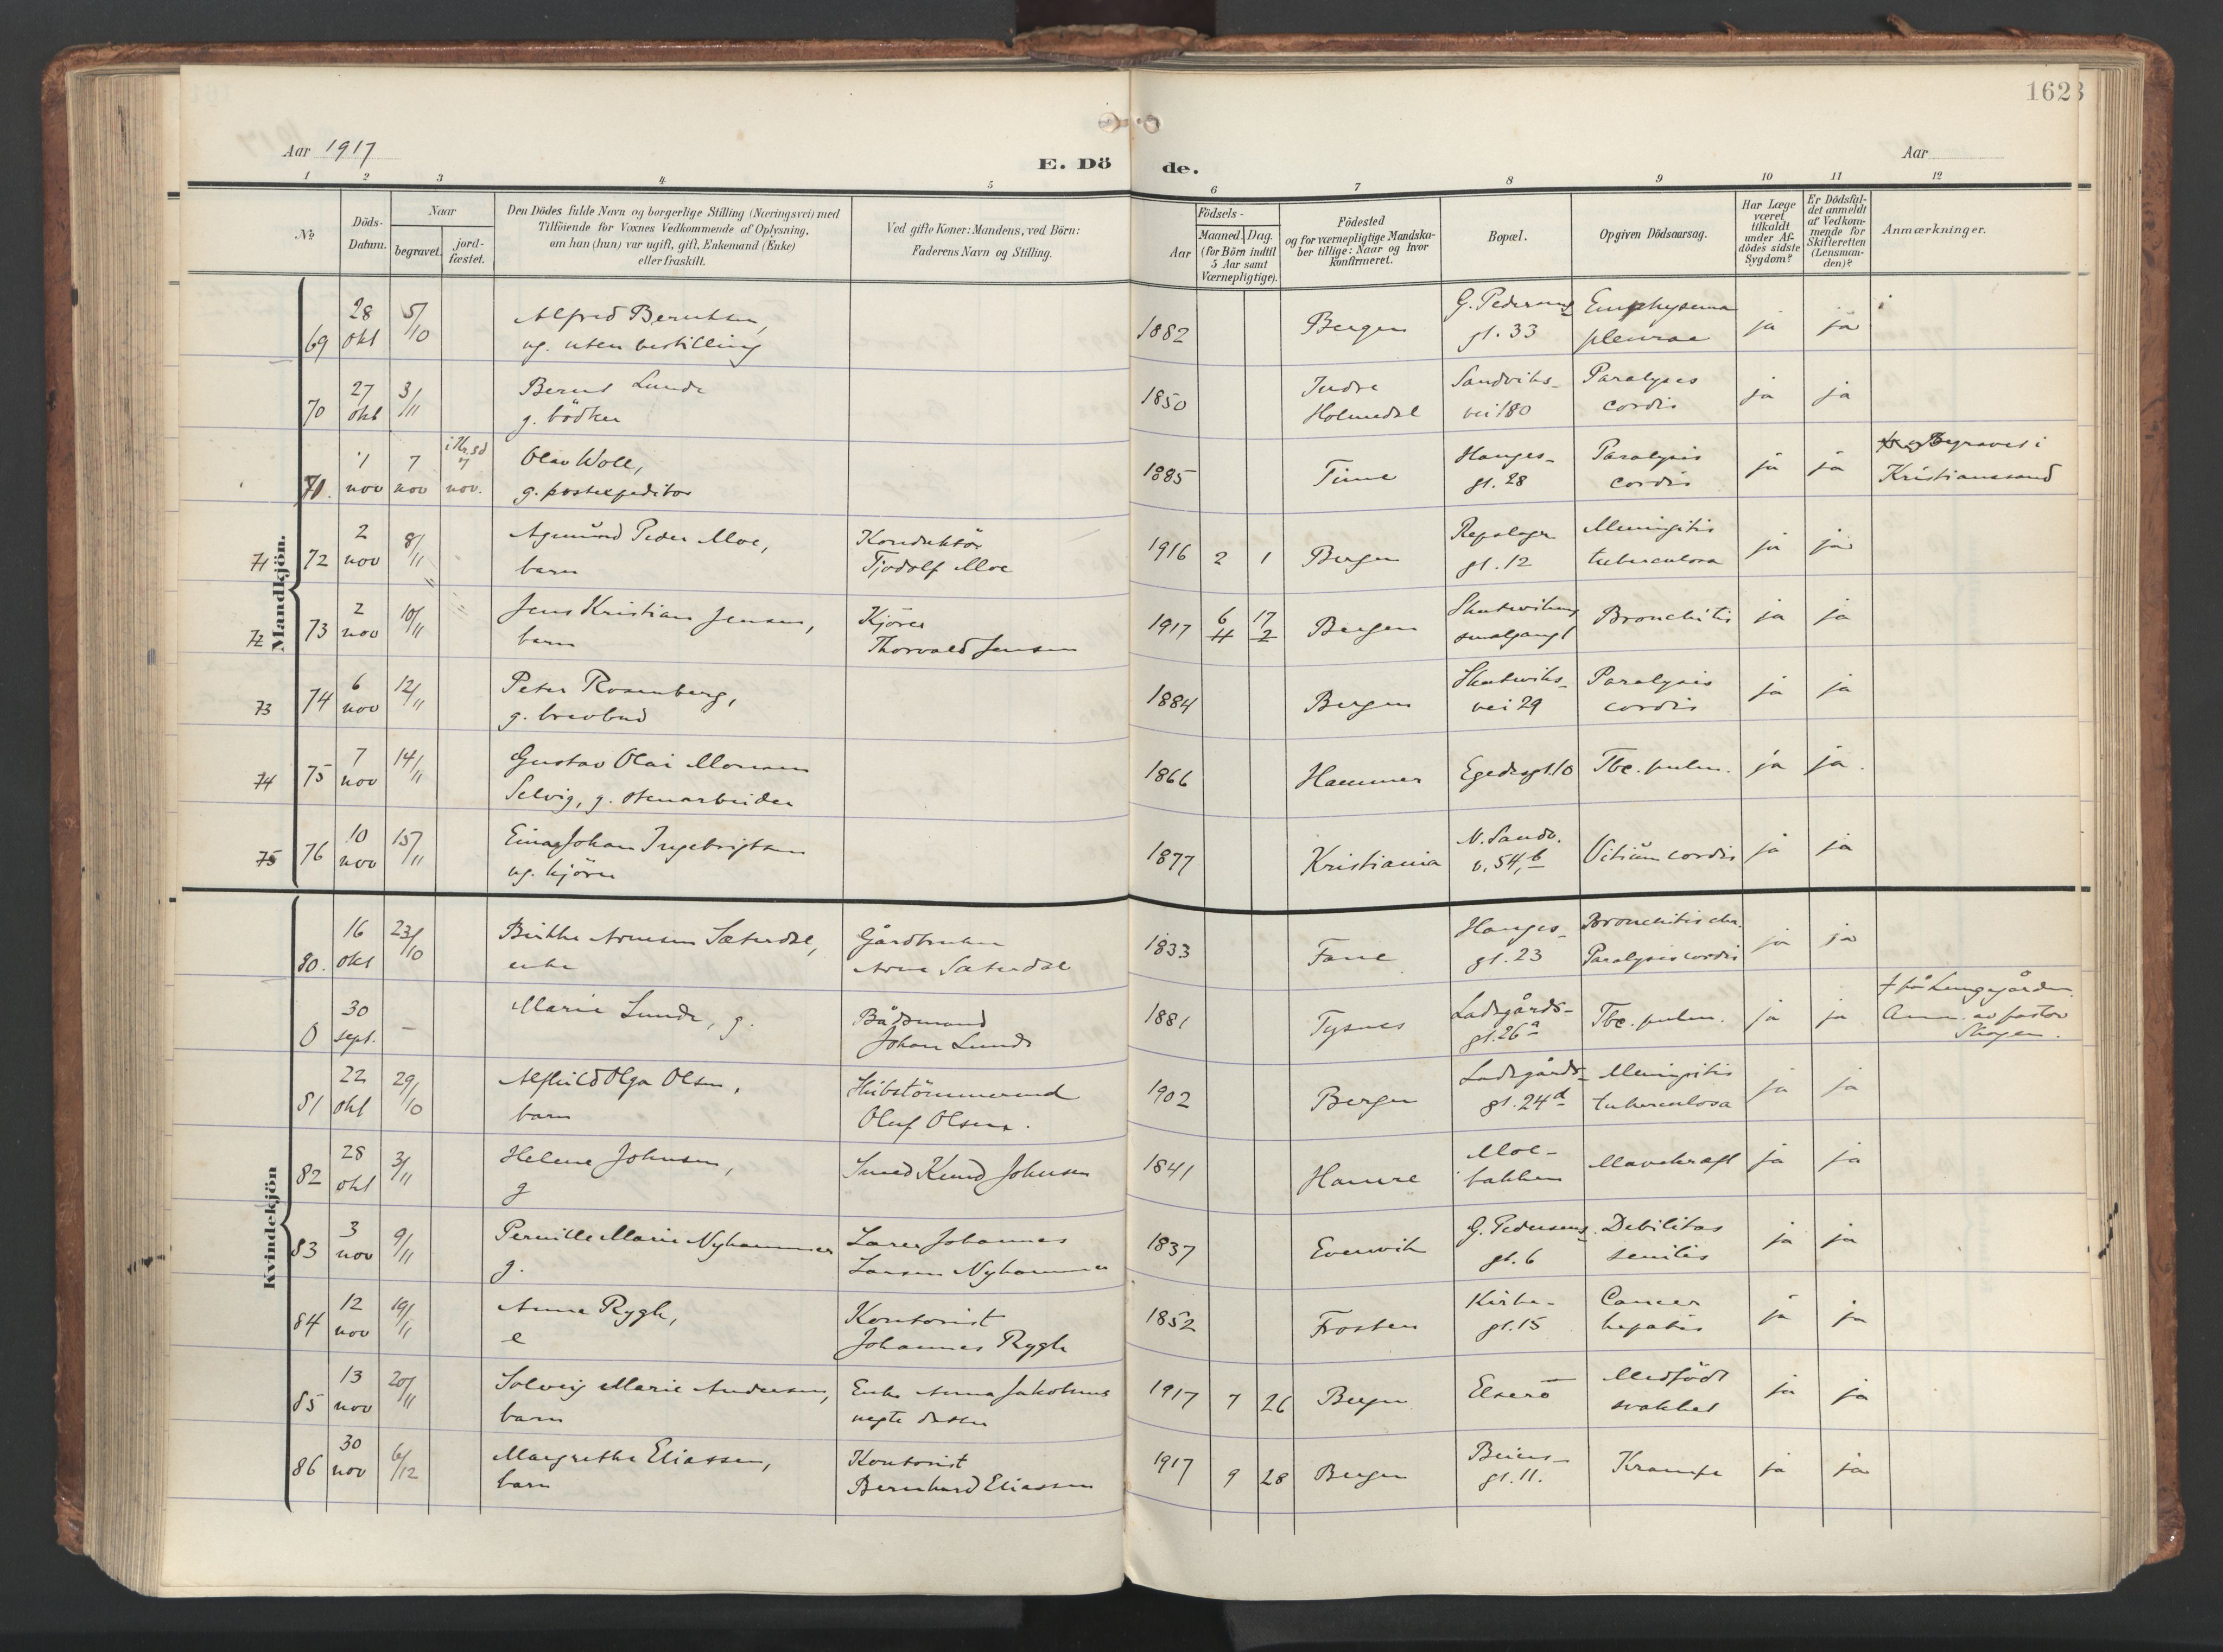 1623
Aar 1917
E. Döde.
Aar
1 2 3 4 5 6 7 8 9 10 11 12
No
Döds-Datum.
Naar
begravet.
jord-fæstet.
Den Dödes fulde Navn og borgerlige Stilling (Næringsvei) med
Tilföiende for Voxnes Vedkommende af Oplysning,
om han (hun) var ugift, gift, Enkemand (Enke)
eller fraskilt.
Ved gifte Koner: Mandens, ved Börn:
Faderens Navn og Stilling.
Födsels-
Aar
Maaned. Dag.
(for Börn indtil
5 Aar samt
Værnepligtige).
Födested
og for værnepligtige Mandska-
ber tillige: Naar og hvor
konfirmeret.
Bopæl.
Opgiven Dödsaarsag.
Har Læge
været
tilkaldt
under Af-
dödes sidste
Sygdom?
Er Dödsfal-
det anmeldt
af Vedkom-
mende for
Skifteretten
(Lensman-
den)?
Anmærkninger.
Mandkjön.
69 28 okt 5/10 Alfred Berntsen, ug. uten bestilling 1882 Bergen G. Pedersens gt. 33 Emphysema pleurae ja ja
70 27 okt 3/11 Bernt Lunde g. bödker 1850 Indre Holmedal Sandviks-vei 180 Paralysis cordis ja ja
71. 1 nov 7 nov i Kr.sd 7 nov. Olav Woll, g. postexpeditor 1885 Time Hauges-gt. 28 Paralysis cordis ja ja begravet i Kristianssand
71 72 2 nov 8/11 Agmund Peder Moe, barn Konduktör Tjodolf Moe 1916 2 1 Bergen Repslager gt. 12 Meningitis tuberculosa ja ja
72 73 2 nov 10/11 Jens Kristian Jensen, barn Kjörer Thorvald Jensen 1917 6 11 17 2 Bergen Skuteviks smalgang 1 Bronchitis ja ja
73 74 6 nov 12/11 Peter Rosenberg, g. brevbud 1884 Bergen Skuteviks-vei 29 Paralysis cordis ja ja
74 75 7 nov 14/11 Gustav Olai Monsen Selvig, g. stenarbeider 1866 Hammer Egedesgt. 10 Tbc. pulm. ja ja.
75 76 10 nov 15/11 Einar Johan Ingebrigtsen ug. kjörer 1877 Kristiania N. Sandv. v. 54,b Vitium cordis ja ja
Kvindekjön
80. 16 okt 23/10 Birthe Arnesen Sæterdal, enke Gårdbruker Arne Sæterdal 1833 Fane Hauges-gt. 23 Bronchitis chr. Paralysis cordis ja ja
0 30 sept. — Marie Lunde, g. Bådsmand Johan Lunde 1881 Tysnes Ladegårds-gt. 26a Tbc. pulm. ja ja † på Lungegården. Anm. av pastor Skagen.
81 22 okt 29/10 Alfhild Olga Olsen, barn Skibstömmermand Oluf Olsen. 1902 Bergen Ladegårds-gt. 24d Meningitis tuberculosa ja ja
82 28 okt 3/11 Helene Johnsen, g Smed Knud Johnsen 1841 Hamre Moe-bakken Mavekræft ja ja
83 3 nov 9/11 Pernille Marie Nyhammer g. Larer Johannes Larsen Nyhammer 1837 Evenvik G. Pedersens gt. 6 Debilitas senilis ja ja
84 12 nov 19/11 Anna Rygh, e Kontorist Johannes Rygh 1852 Frosten Kirke-gt. 15 Cancer hepatis ja ja
85 13 nov 20/11 Solveig Marie Andersen, barn Enke Anna Jakobsens uegte datter 1917 7 26 Bergen Elserö Medfödt svakhet ja ja
86 30 nov 6/12 Margrethe Eliassen, barn Kontorist Bernhard Eliassen 1917 9 28 Bergen Beiers-gt. 11. Krampe ja ja